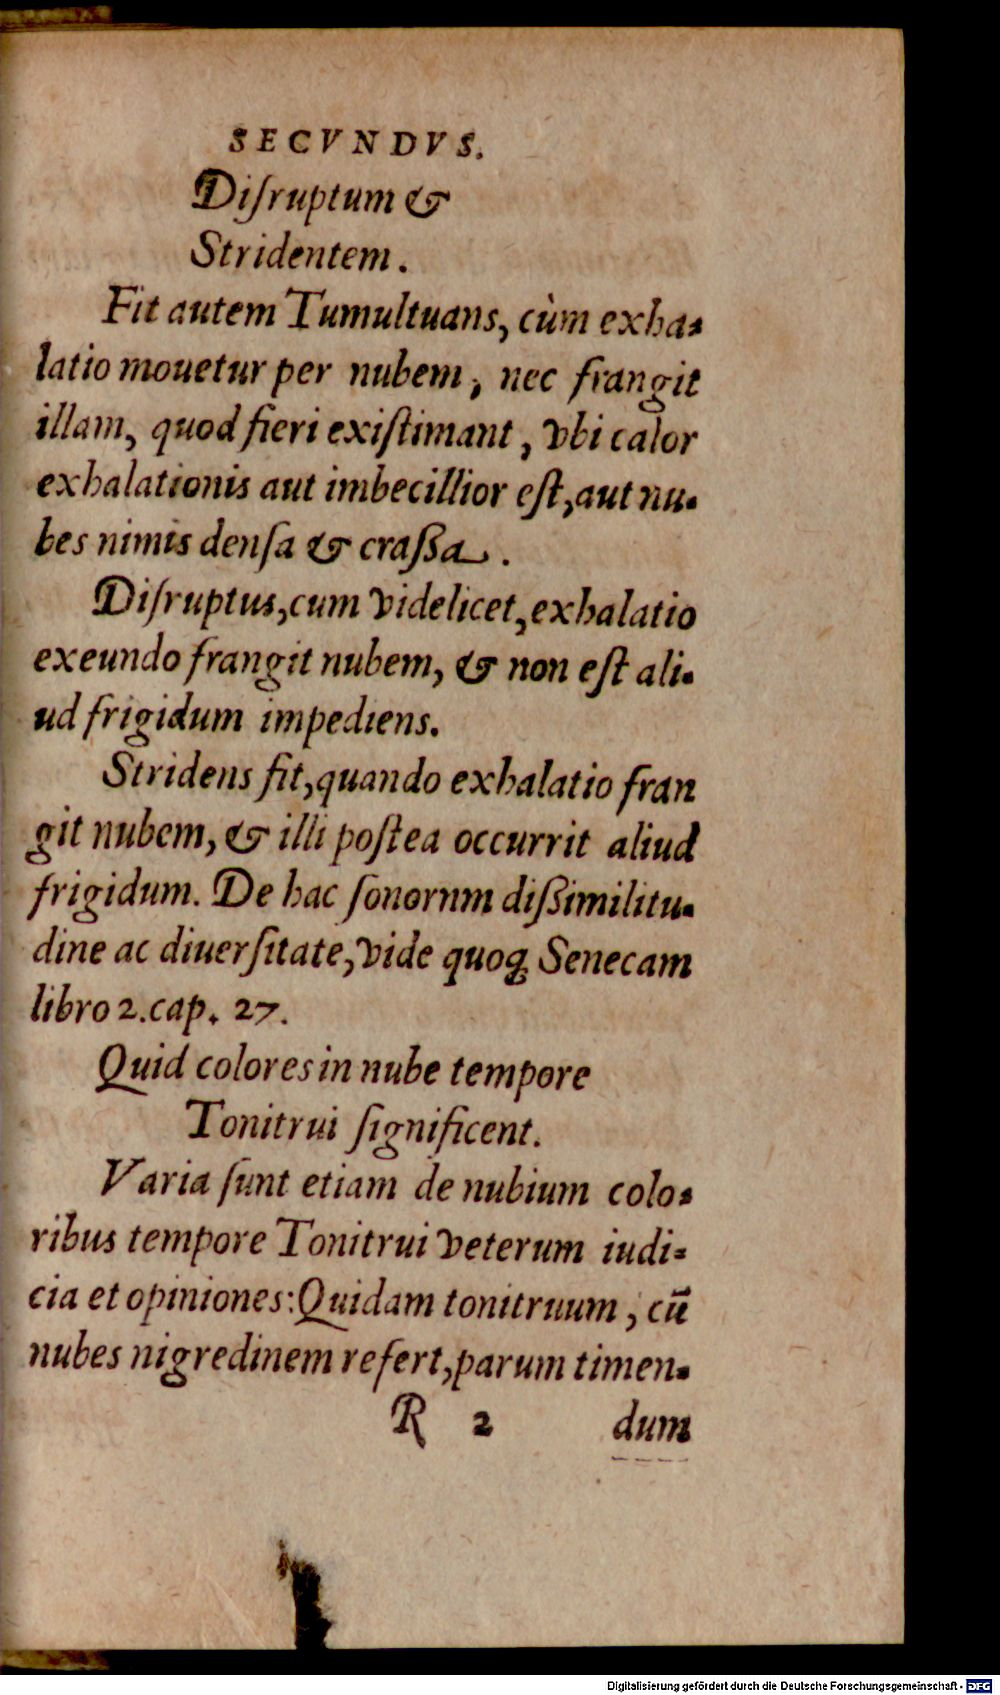 SECVNDVS.
Diſruptum &
Stridentem.
Fit autem Tumultuans, cùm exha-
latio mouetur per nubem, nec frangit
illam, quod fieri exiſtimant, vbi calor
exhalationis aut imbecillior eſt, aut nu-
bes nimis denſa & craßa.
Diſruptus, cum videlicet, exhalatio
exeundo frangit nubem, & non eſt ali-
ud frigidum impediens.
Stridens fit, quando exhalatio fran
git nubem, & illi poſtea occurrit aliud
frigidum. De hac ſonornm dißimilitu-
dine ac diuerſitate, vide quoq; Senecam
libro 2. cap. 27.
Quid colores in nube tempore
Tonitrui ſignificent.
Varia ſunt etiam de nubium colo-
ribus tempore Tonitrui veterum iudi-
cia et opiniones: Quidam tonitruum, cū
nubes nigredinem refert, parum timen-
R 2 dum
Digitalisierung gefördert durch die Deutsche Forschungsgemeinschaft - DFG